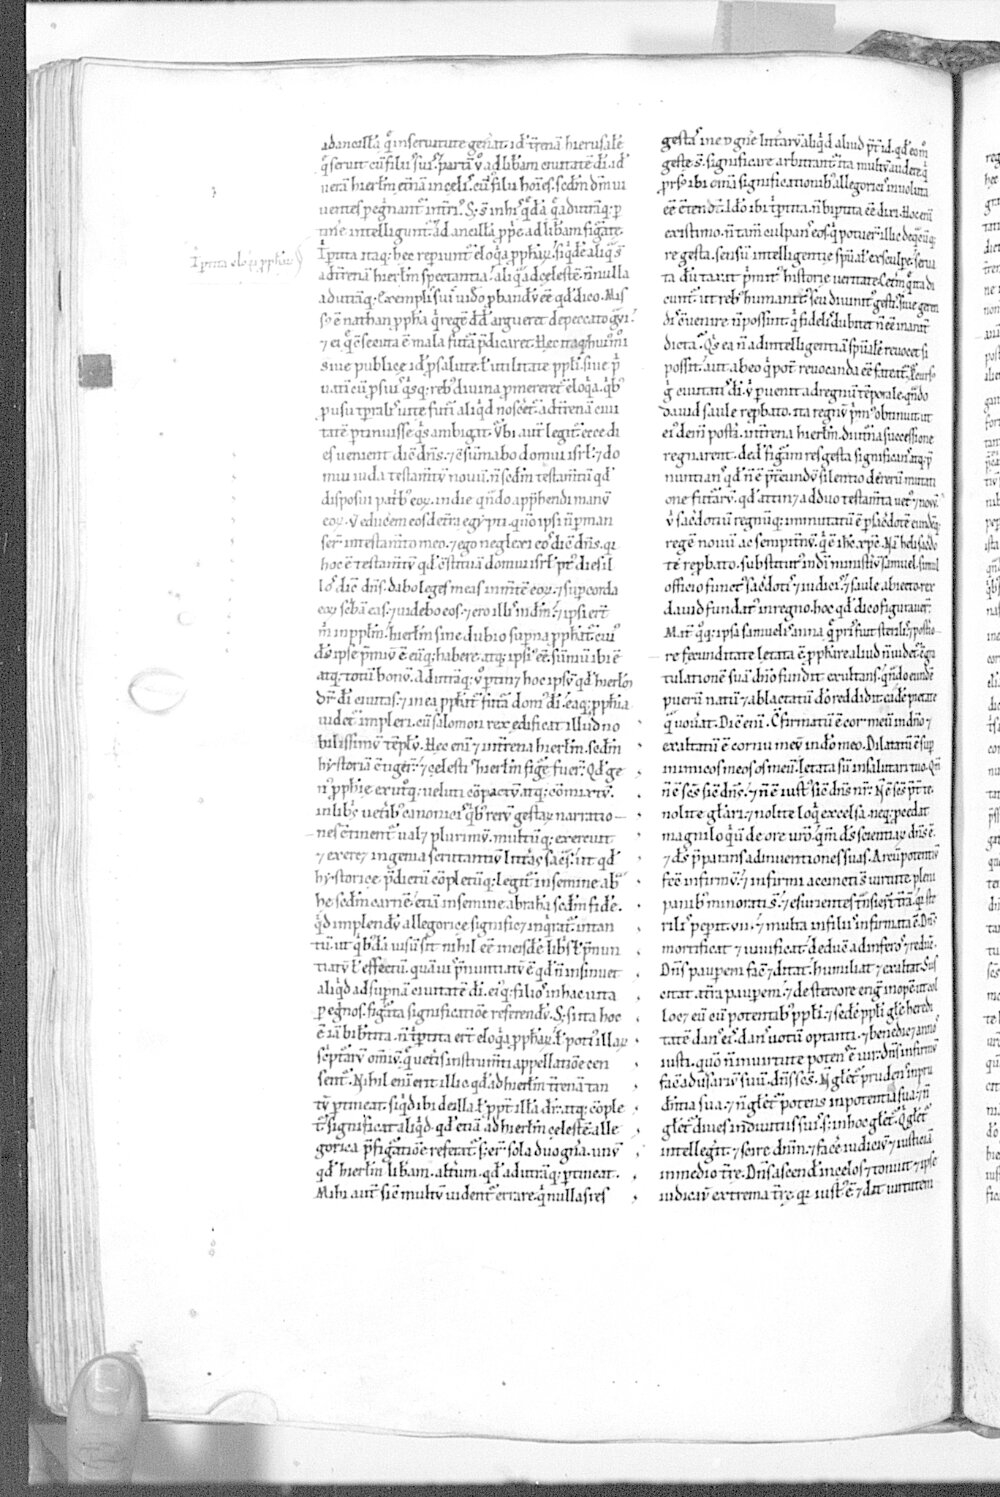 Tp̃tita eloq̃a pphaꝝ
ad ancillā q̃ in seruitute geñat. id ÷ t̃renā hierusalē
q̃ seruit cū filiis suis. partī v̾ ad liberam ciuitatē di. id ÷
uerā hierlm̃ et̃nā in celis. cui᷒ filii hoīes. scd̃m dm̃ ui
uentes peg̃nant᷒ in t̃ris. S; s̄ in his q̃dā q̃ ad utrāq; p
tinẽ intelligunt᷒. ad ancillā pp̃e ad liberam fig̃ate.
Tp̃tita itaq; hec repiunt᷒ eloq̃a pphaꝝ. siq̃dē aliq̃ s̄
ad t̃renā hierlm̃ spectantia. aliq̃ ad celestē. ñnulla
ad utrāq;. Exemplis uideo pbandū ēē qd̃ dico. Mis
sus ē nathan ppha q̃ regē dd̃ argueret de peccato g̃ui.
⁊ ei q̃ ÷ secuta ē mala fut᷒a p̃dicaret. Hec itaq; hui᷒m̃i
siue publice id ÷ p salute ł utilitate ppli. siue p̃
uatī cū p suis q̃sq; reb᷒ diuina pmereret᷒ eloq̃a. q̃b᷒
p usu tp̃ralis uite fut᷒i aliq̃d nosceret᷒. ad t̃renā ciui
tatē ptinuisse q̃s ambigat. Vbi aut̃ legit᷒. ecce di
es uenient dic̃ dñs. ⁊ ɔsūmabo domui isrł ⁊ do
mui iuda testam̃tū nouū. ñ scd̃m testam̃tū qd̃
disposui patrib᷒ eoꝝ. in die qñdo app̃hendi manū
eoꝝ. ut educerem eos de t̃ra egypti. qm̃ ipsi ñ p man
ser̃ in testam̃to meo. ⁊ ego neglexi eos dic̃ dñs. q̃
hoc ē testam̃tū qd̃ ɔstituā domui isrł post dies il
los dic̃ dñs. dabo leges meas in mēte eoꝝ. ⁊ sup corda
eoꝝ scbā eas. ⁊ uidebo eos. ⁊ ero illis in dm̃. ⁊ ipsi er̃t
m̃ in pplm̃. hierlm̃ sine dubio supna pphat᷒. cui᷒
ds̃ ipse p̃miū ē eiq; habere. atq; ipsi᷒ ēē. sūmū ibi ē
atq; totū bonū. Ad utrāq; v̾ ptin⁊ hoc ipsū qd̃ hierlm̃
dr̃ di ciuitas. ⁊ in ea pphat᷒ fut᷒a dom᷒ di. eaq; pphia
uidet᷒ impleri. cū salomon rex edificat illud no
bilissimū tẽplū. Hec enī ⁊ in t̃rena hierlm̃ scd̃m
hystoriā ɔtiger̃. ⁊ celestis hierlm̃ fig̃e fuer̃. Qd̃ ge
n᷒ pphie ex utroq; ueluti cōpactū. atq; cōmixtū.
in libris uetib᷒ canonicis q̃b᷒ rerū gestaꝝ narratio
nes ɔtinent᷒ ual⁊ plurimū. multūq; exercuit
⁊ exerc⁊ ingenia scrutantiū litt᷒as sac̃s. ut qd̃
hystorice p̃dictū cōpletūq; legit᷒ in semine ab᷒
he scd̃m carnē. etiā in semine abrahę scd̃m fidē.
q̃d implendū allegorice significet inq̃rat᷒. in tan
tū. ut q̃b᷒dā uisū sit. nihil ēē in eisdē libris ł p̃nun
tiatū ł effectū. quā uis p̃nuntiatū ē qd̃ ñ insinuet
aliq̃d ad supnā ciuitatē di. ei᷒q; filios in hac uita
peg̃nos. fig᷒ata significatiōe referendū. S; si ita hoc
ē iā bib̃tita. ñ tp̃tita er̃t eloq̃a pphaꝝ. ł poti᷒ illaꝝ
sc̃ptaꝝ omīū. q̃ uetis instrum̃ti appellatiōe cen
sent᷒. Nihil enī erit illic qd̃ ad hierlm̃ t̃renā tan
tū ptineat. si q̃d ibi de illa ł ppt illā dr̃. atq; cōple
t᷒. significat aliq̃d. qd̃ etiā ad hierlm̃ celestē alle
gorica p̃figatiōe referat᷒. s; er̃ sola duo gñra. unū
qd̃ hierlm̃ liberam. altm̃. qd̃ ad utrāq; ptineat.
Mihi aut̃ sic̃ multū uident᷒ errare. q̃ nullas res
gestas in eo gñe litt᷒arū aliq̃d aliud p̃t id. qd̃ eo m̃
geste s̄. significare arbitrant᷒. ita multū audere q̃
psus ibi omia significationib᷒ allegoricis inuoluta
ēē ɔtendt̃. Ido ibi tp̃tita. ñ bipartita ēē dixi. Hoc enī
existimo. ñ tam̃ culpans eos. q̃ potuer̃ illic de q̃cūq;
re gesta. sensū intelligentie sp̃ualis exsculpe. serua
ta dū taxat p̃mit᷒ historie ueritate. Cet̃m q̃ ita di
cunt᷒. ut reb᷒ humanit᷒ seu diuinit᷒ gestis siue geren
dis ɔuenire ñ possint. q̃ fidelis dubitet ñ ēē inanit᷒
dicta. Q̃s ea ñ ad intelligentiā sp̃ualē reuocet si
possit. aut ab eo q̃ pot᷒ reuocanda ēē fateat᷒. Pcurs᷒
g̃ ciuitatis di. v̾ puenit ad regnū tẽporale. qñdo
dauid saule repbato. ita regnū p̃m᷒ obtinuit. ut
ei᷒ dein posti. in t̃rena hierlm̃. diut᷒na successione
regnarent. dedit fig᷒am res gesta significans. atq; p̃
nuntians. qd̃ ñ ē p̃tereundū silentio de rerū mutati
one fut᷒arū. qd̃ attin⁊ ad duo testam̃ta uetus ⁊ nouū.
v̾ sac̃dotiū regnūq; immutatū ē p sac̃dotē eundēq;
regē nouū ac sempit̃nū. q̃ ē ihc̃ xp̃c. Nā heli sac̃do
te repbato. substitut᷒ in di ministiū samuel. simul
officio funct᷒ sac̃dotis ⁊ iudicis. ⁊ saule abiecto rex
dauid fundat᷒ in regno. hoc qd̃ dico figurauer̃.
Mat̃ q̃q; ipsa samuelis anna q̃ pri᷒ fuit sterilis. ⁊ postio
re fecunditate letata ē. pphare aliud ñ uidet᷒. ɔg᷒a
tulationē suā dn̄o fundit exultans. q̃ñdo eundē
puerū natū ⁊ ablactatū dō reddidit eadē pietate
q̃ uouat. Dic̃ enī. Ɔfirmatū ē cor meū in dn̄o ⁊
exaltatū ē cornu meū in dō meo. Dilatatū ē sup
inimicos meos os meū. letata sū in salutari tuo. Qm̃
ñ ē sc̃s sic̃ dñs. ⁊ ñ ē iust᷒ sic̃ ds̃ nr̃. Ñ ē sc̃s p̃t te.
nolite gl̃ari. ⁊ nolite loq̃ excelsa. neq; pcedat
magniloq̃ū de ore ur̃o. qm̃ ds̃ scientiaꝝ dñs ē.
⁊ ds̃ p̃parans adinuentiones suas. Arcū potentiū
fec̃ infirmū. ⁊ infirmi accincti s̄ uirtute. pleni
panib᷒ minorati s̄. ⁊ esurientes t̃nsier̃ t̃rā. q̃ ste
rilis pepit. vii. ⁊ multa in filiis infirmata ē. Dñs
mortificat ⁊ uiuificat. deduc̃ ad inferos ⁊ reduc̃.
Dñs paupem fac̃ ⁊ ditat. humiliat ⁊ exaltat. Sus
citat a t̃ra paupem. ⁊ de stercore erig᷒ inopē. ut col
loc⁊ eū cū potentib᷒ ppli. ⁊ sedē gl̃e heredi
tatē dans eis. dans uotū optanti. ⁊ benedix annos
iusti. qm̃ ñ in uirtute potens ē uir. dñs infirmū
fac̃ aduersariū suū. dñs sc̃s. Ñ gl̃et᷒ prudens in pru
dentia sua. ⁊ ñ gl̃et᷒ potens in potentia sua. ⁊ ñ
gl̃et᷒ diues in diuitiis suis. s; in hoc gl̃et᷒ q̃ gl̃et᷒
intellegit᷒. ⁊ scire dnm̃. ⁊ face iudiciū ⁊ iusticiā
in medio t̃re. Dñs ascendit in celos ⁊ tonuit. ⁊ ipse
iudicat extrema t̃re. q̃ iust᷒ ē ⁊ dat uirtutem